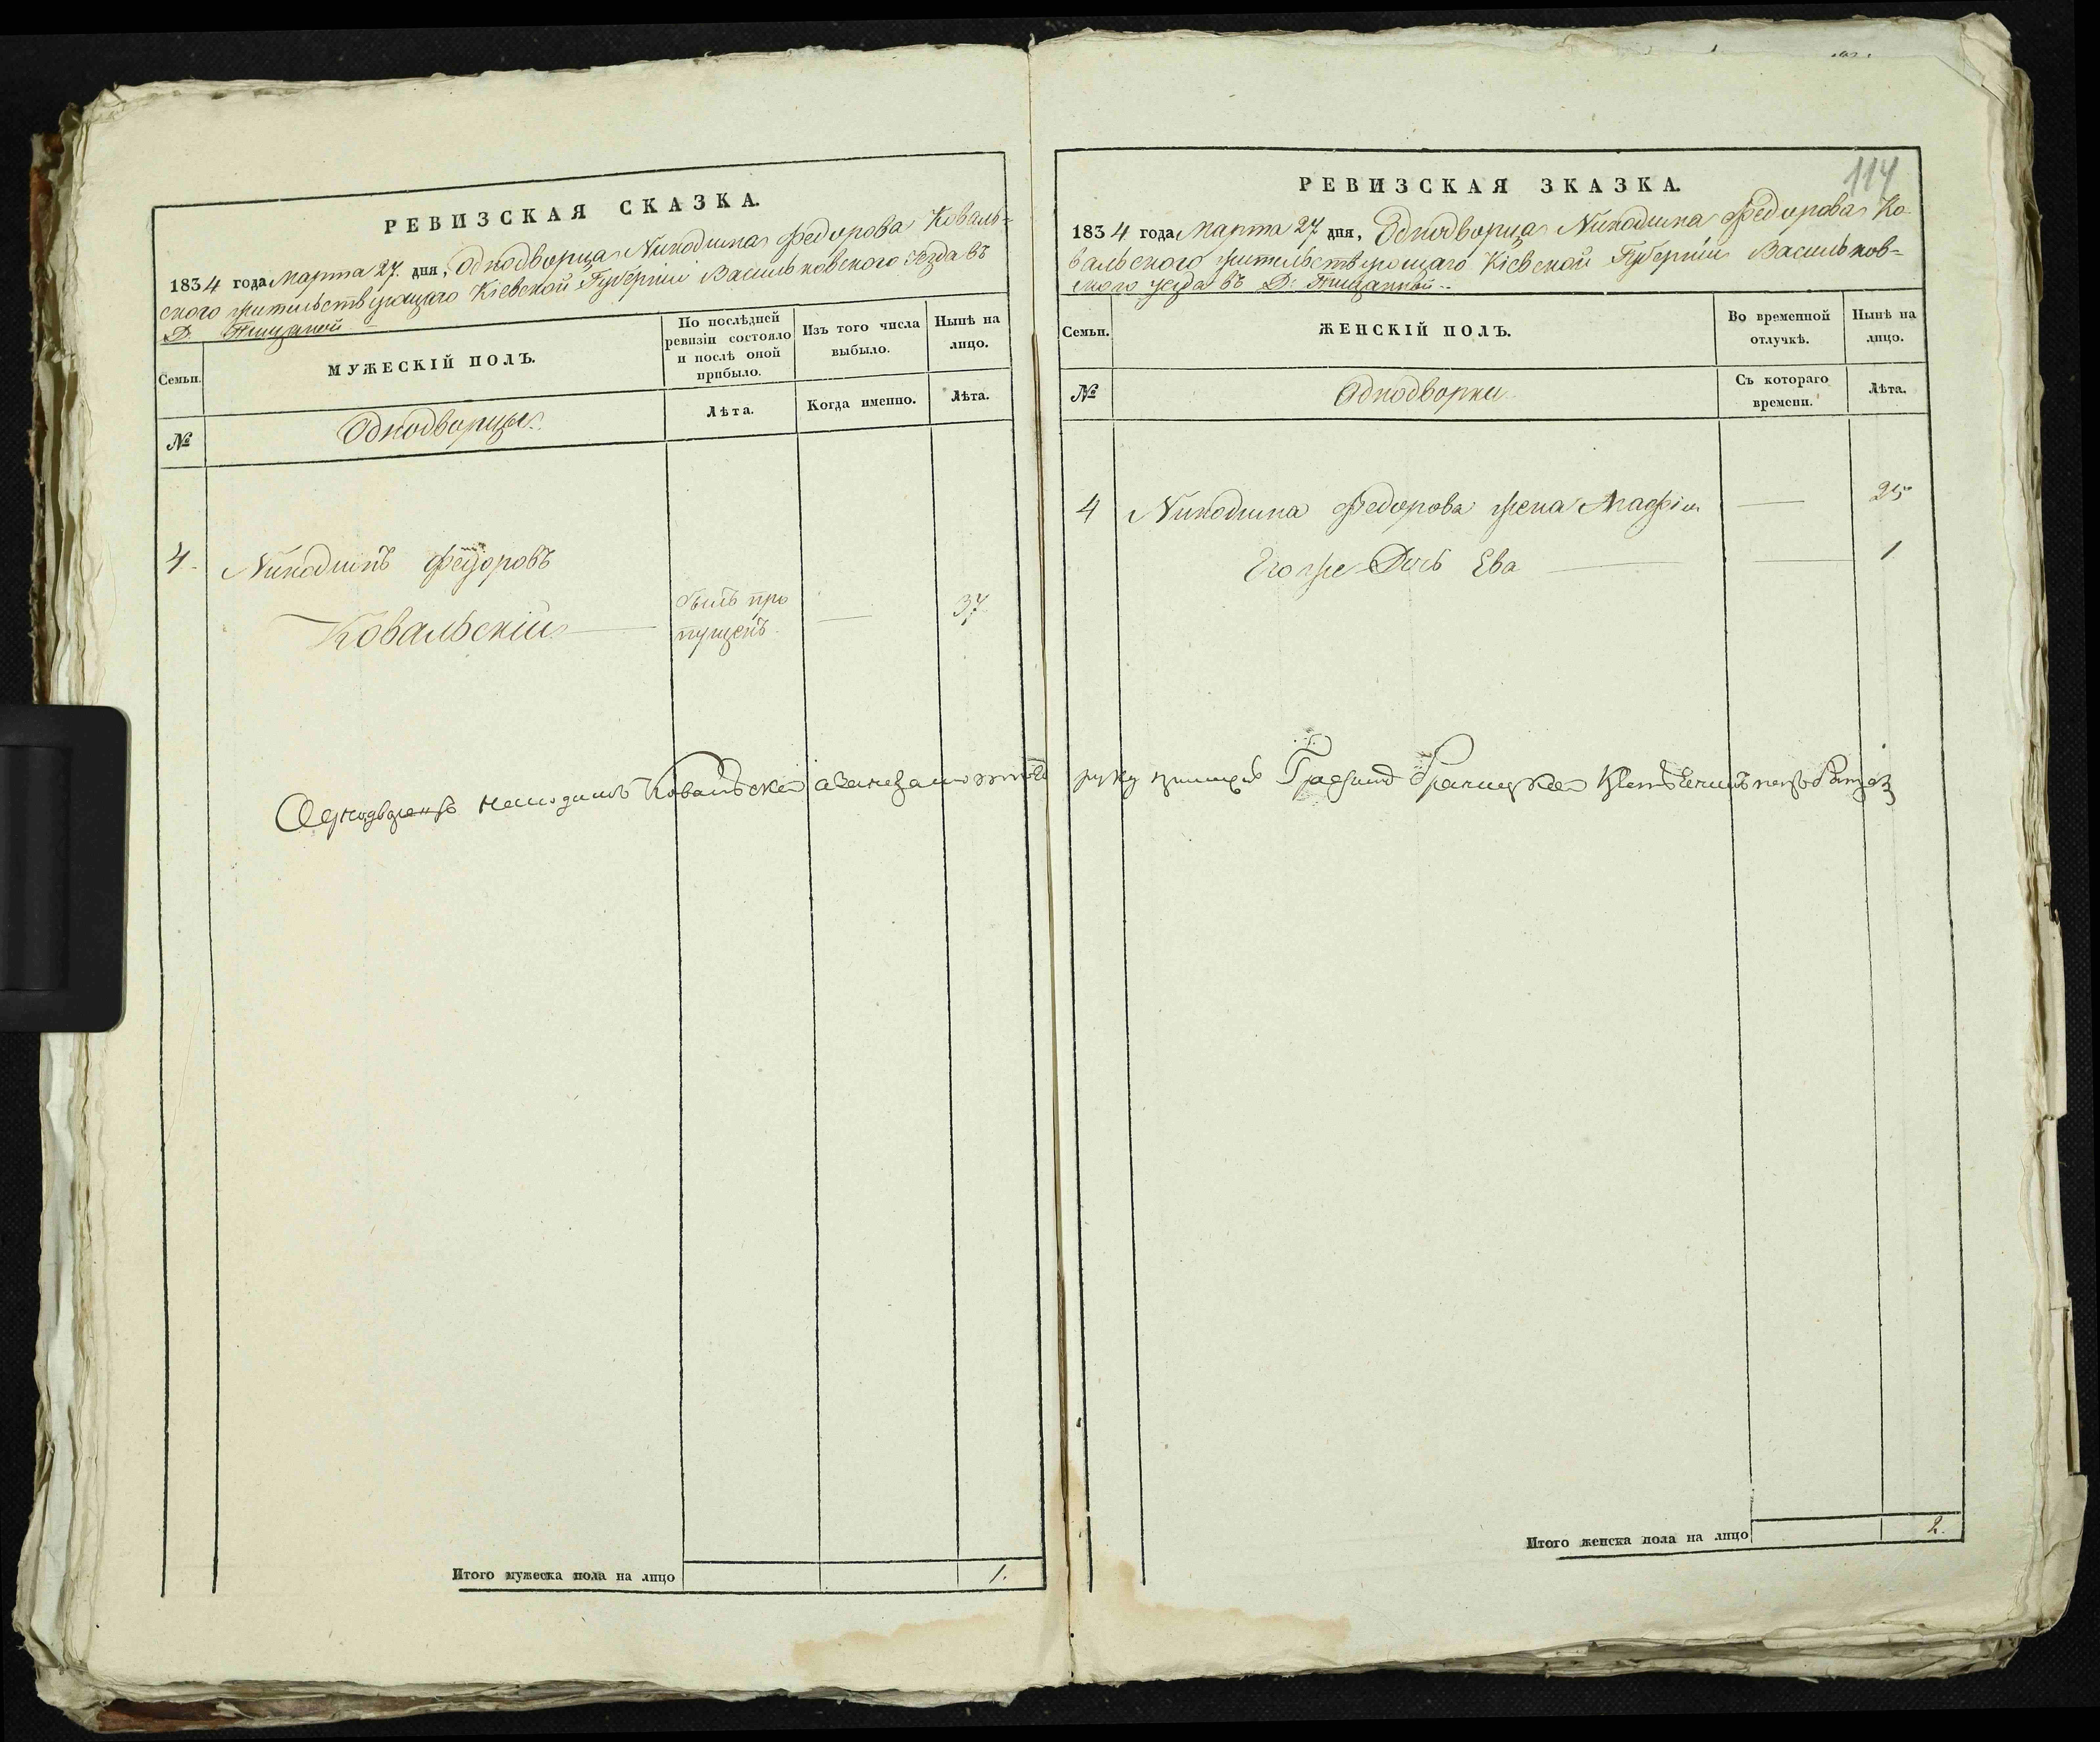 РЕВИЗСКАЯ СКАЗКА.
1834 года Марта 27. дня, Однодворца Никодима Федорова Коваль-
ского жительствующаго Кіевской Губерніи Васильковского уезда въ
Д.
Семьи.
МУЖЕСКІЙ ПОЛЪ.
По послѣдней ревизіи состояло и послѣ оной прибыло.
Изъ того числа выбыло.
Нынѣ на лицо.
№
Однодворцы.
Лѣта.
Когда именно.
Лѣта.
4. Никодимъ Федоровъ
Ковальскій
былъ про
пущенъ.
37.
Однодворецъ Никодимъ Ковальскей
Итого мужеска пола на лицо 1.
114
РЕВИЗСКАЯ ЗКАЗКА.
1834 года Марта 27. дня, Однодворца Никодима Федорова Ко-
вальского жительствующаго Кіевской Губерніи Васильков-
ского уезда въ Д.
Семьи.
ЖЕНСКІЙ ПОЛЪ.
Во временной отлучкѣ.
Нынѣ на лицо.
№
Однодворки
Съ котораго времени.
Лѣта.
4 Никодима Федорова жена 25
Его же Дочь Ева 1
руку
Итого женска пола на лицо 2.